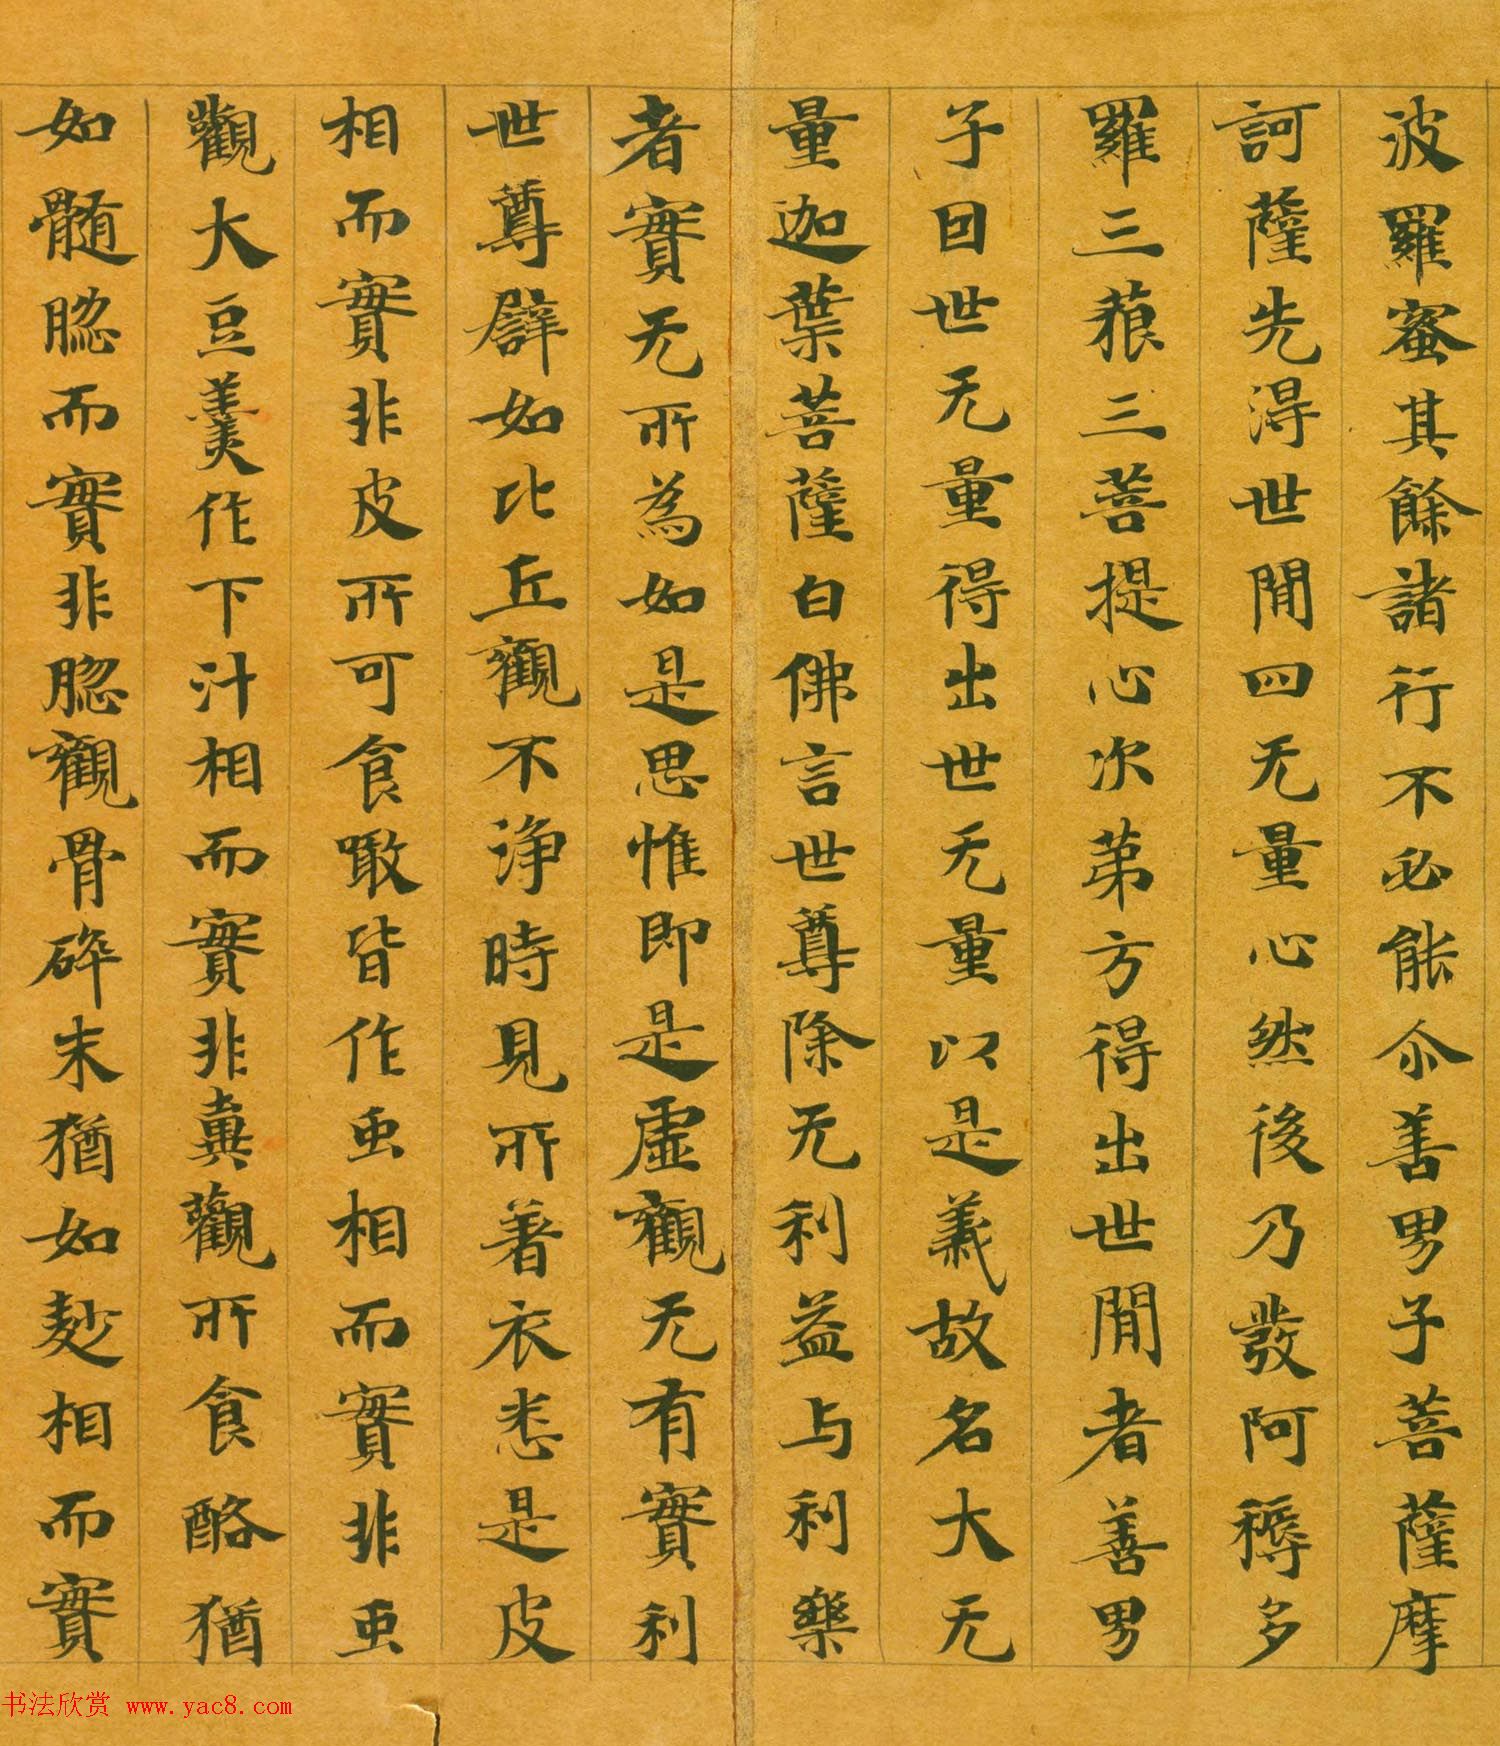 波羅蜜其餘諸行不必能尒善男子菩薩摩
訶薩先得世間四无量心然後乃發阿耨多
羅三藐三菩提心次第方得出世間者善男
子因世无量得出世无量以是義故名大无
量迦葉菩薩白佛言世尊除无利益与利樂
者實无所為如是思惟即是虛觀无有實利
世尊譬如比丘觀不淨時見所著衣悉是皮
相而實非皮所可食噉皆作虫相而實非虫
觀大豆羹作下汁相而實非糞觀所食酪猶
如髓腦而實非腦觀骨碎末猶如麨相而實
书法欣赏 www.yac8.com